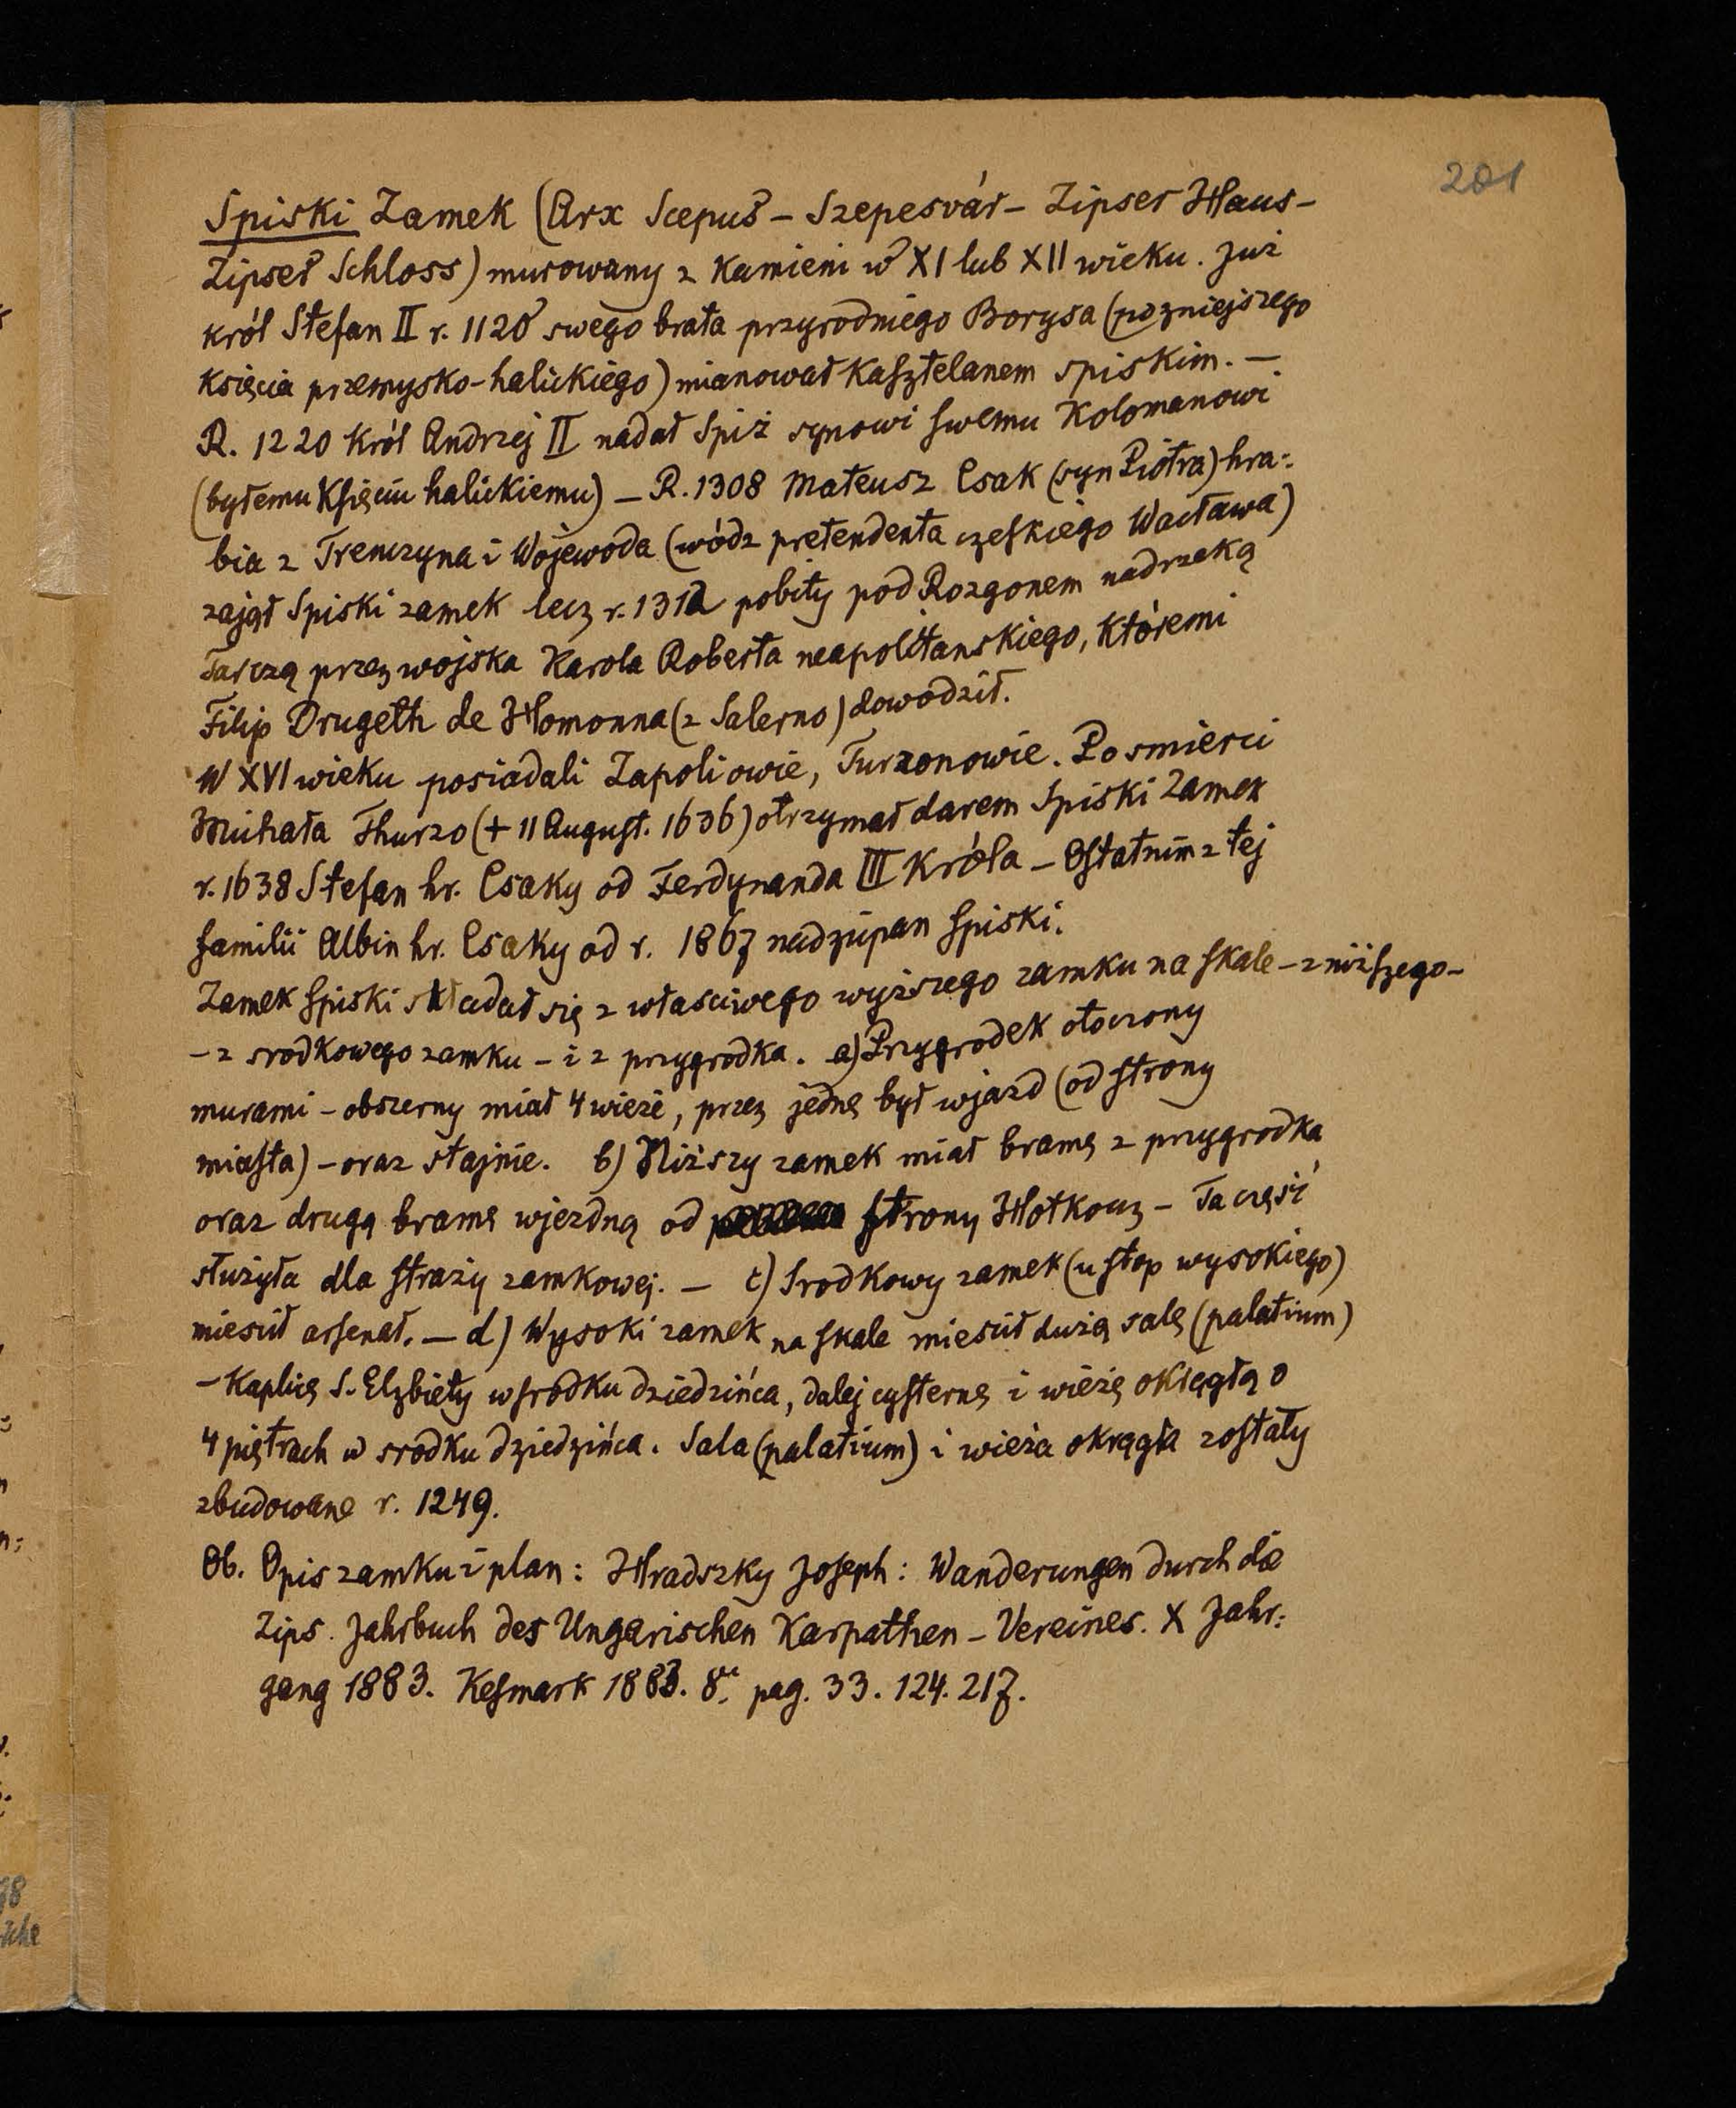 201
Spiski Zamek (Arx Scepus – Szepesvár – Zipser Haus –
Zipser Schloss) murowany z kamieni w XI lub XII wieku. Już
król Stefan II r. 1120 swego brata przyrodniego Borysa (pozniejszego
księcia przemysko-halickiego) mianował Kasztelanem spiskim. –
R. 1220 król Andrzej II nadał Spiż synowi swemu Kolomanowi
(byłemu Księciu halickiemu) – R. 1308 Mateusz Csak (syn Piotra) hra-
bia z Trenczyna i Wojewoda (wódz pretendenta czeskiego Wacława)
zajął Spiski zamek lecz r. 1312 pobity pod Rozgonem nad rzeką
Tarczą przez wojska Karola Roberta neapolitanskiego, któremi
Filip Drugeth de Homonna (z Salerno) dowodził.
W XVI wieku posiadali Zapoliowie, Turzonowie. Po smierci
Michała Thurzo (+ 11 August. 1636) otrzymał darem Spiski Zamek
r. 1638 Stefan hr. Csaky od Ferdynanda III Króla – Ostatnim z tej
familii Albin hr. Csaky od r. 1867 nadżupan spiski.
Zamek spiski składał się z własciwego wyższego zamku na skale – z niższego –
– z srodkowego zamku – i z przygrodka. a) Przygrodek otoczony
murami – obszerny miał 4 wieże, przez jednę był wjazd (od strony
miasta) – oraz stajnie. b) Niższy zamek miał bramę z przygrodka
oraz drugą bramę wjezdną od strony Hotkocz – Ta część
służyła dla straży zamkowej. – c) Srodkowy zamek (u stop wysokiego)
miescił arsenał. – d) Wysoki zamek na skale miescił dużą salę (palatium)
– Kaplicę S. Elżbiety w srodku dziedzińca, dalej cysternę i wieżę okrągłą o
4 piętrach w srodku dziedzińca. Sala (palatium) i wieża okrągła zostały
zbudowane r. 1249.
Ob. Opis zamku i plan: Hradszky Joseph: Wanderungen durch die
Zips. Jahrbuch des Ungarischen Karpathen – Vereines. X Jahr-
gang 1883. Kesmark 1883. 8º pag. 33. 124. 217.